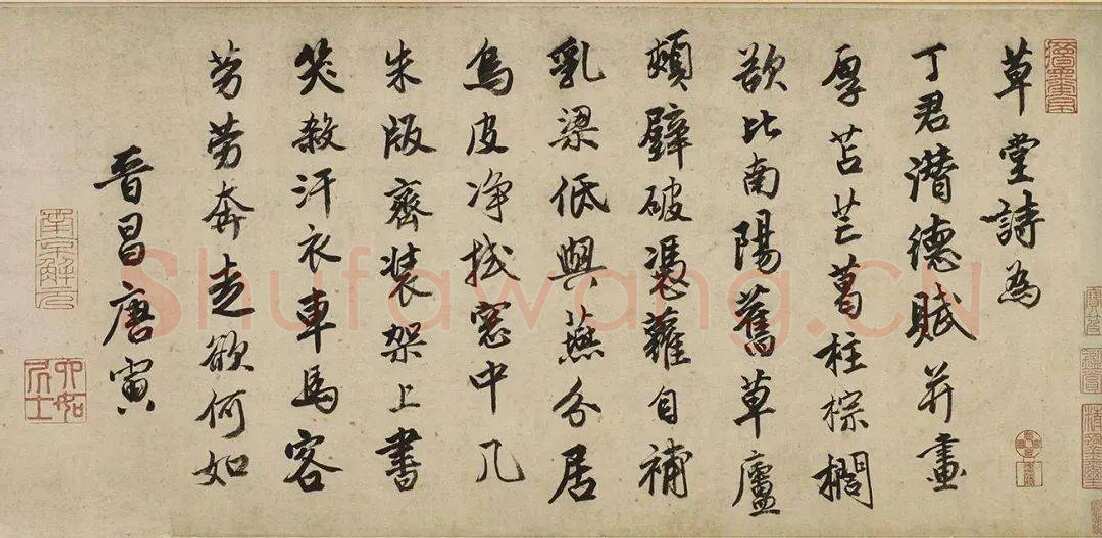 草堂詩為
丁君潛德賦并畫
厚苫芒葛柱棕櫚
欲比南陽舊草廬
頹壁破憑蘿自補
乳梁低與燕分居
烏皮净拭窓中几
朱版齊裝架上書
笑殺汗衣車馬客
勞勞奔走欲何如
晉昌唐寅
南京解元
六如居士
Shufawang.CN